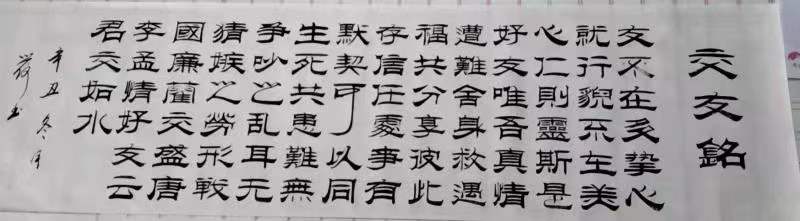 交友銘
友不在多摯心
就行貌不在美
心仁則靈斯是
好友唯吾真情
遭難舍身救遇
福共分享彼此
存信任處事有
默契可以同
生死共患難無
争吵之乱耳无
猜嫉之勞形戰
國廉藺交盛唐
李孟情好友云
君交如水
辛丑冬月
书